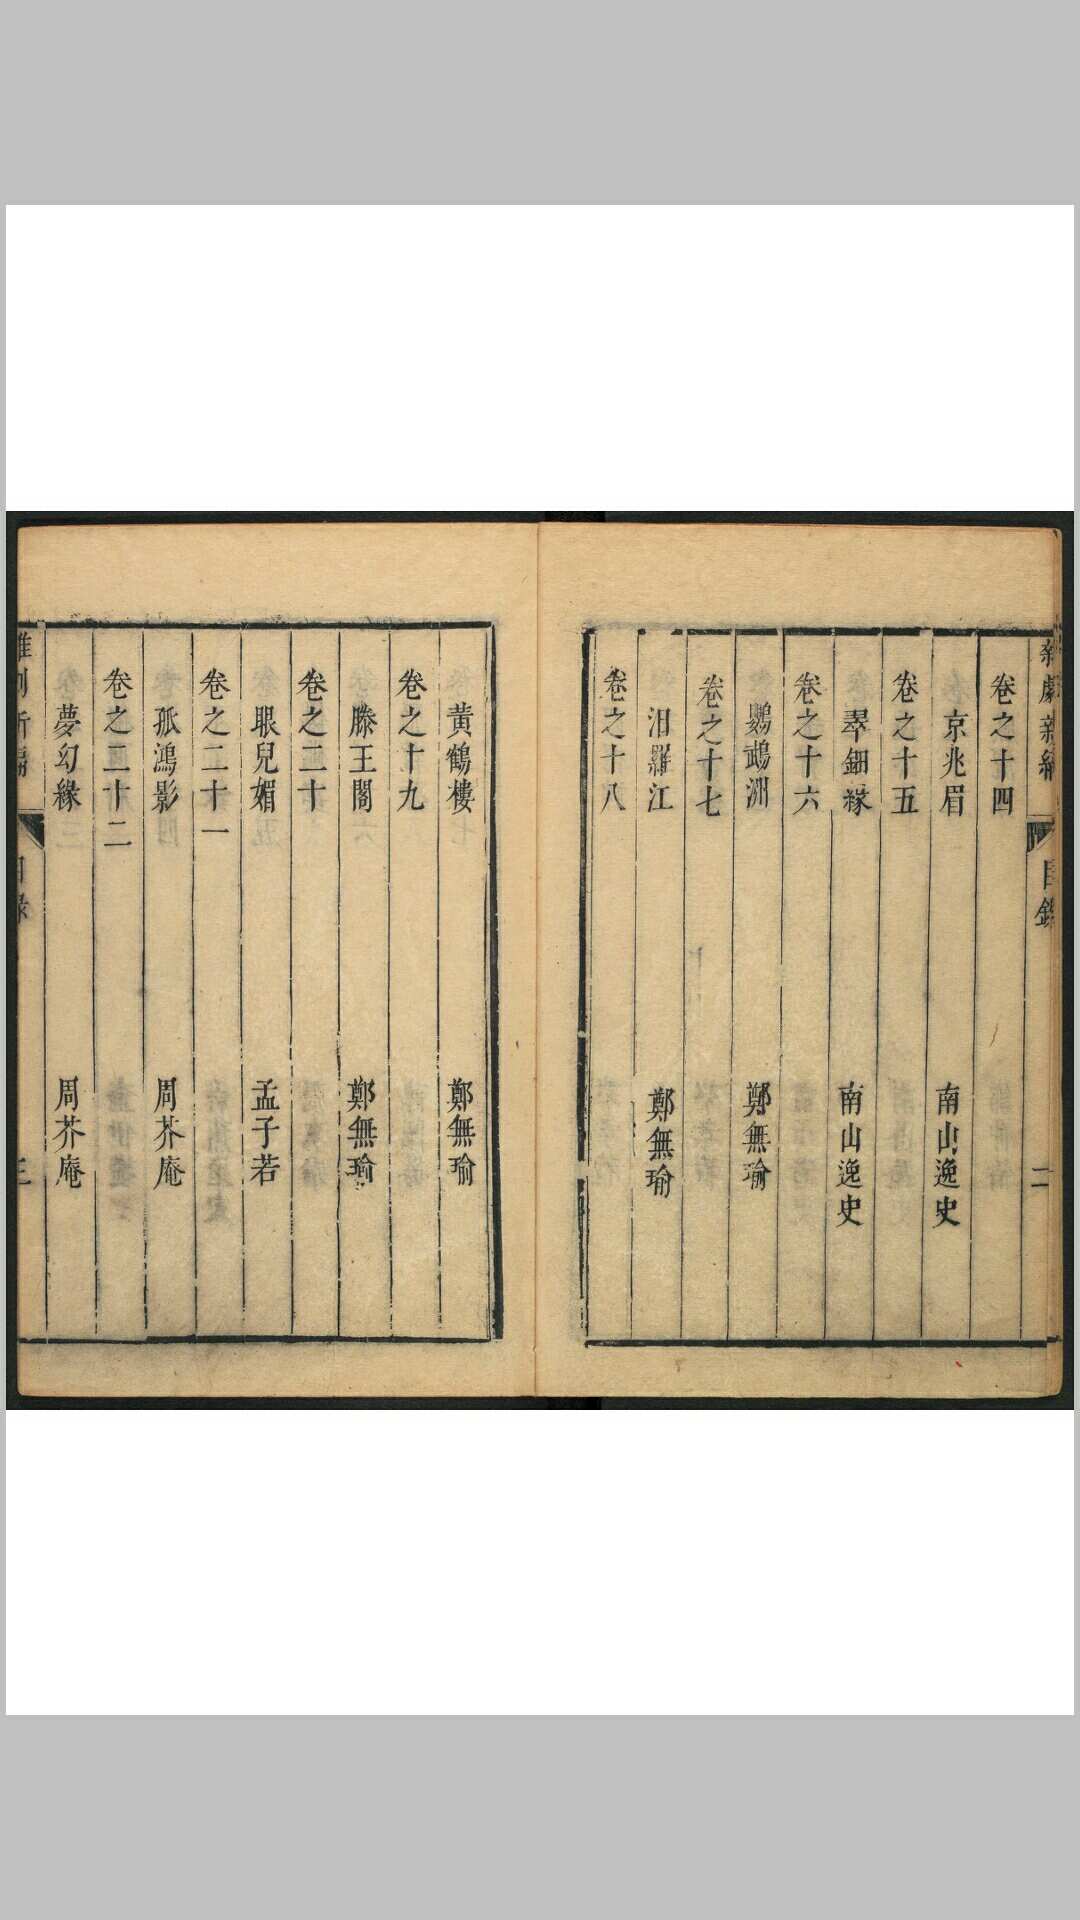 雜劇新編
目錄
二
卷之十四
京兆眉
南山逸史
卷之十五
翠鈿緣
南山逸史
卷之十六
鸚鵡洲
鄭無瑜
卷之十七
汨羅江
鄭無瑜
卷之十八
黃鶴樓
鄭無瑜
卷之十九
滕王閣
鄭無瑜
卷之二十
眼兒媚
孟子若
卷之二十一
孤鴻影
周芥庵
卷之二十二
夢幻緣
周芥庵
雜劇新編
目錄
三